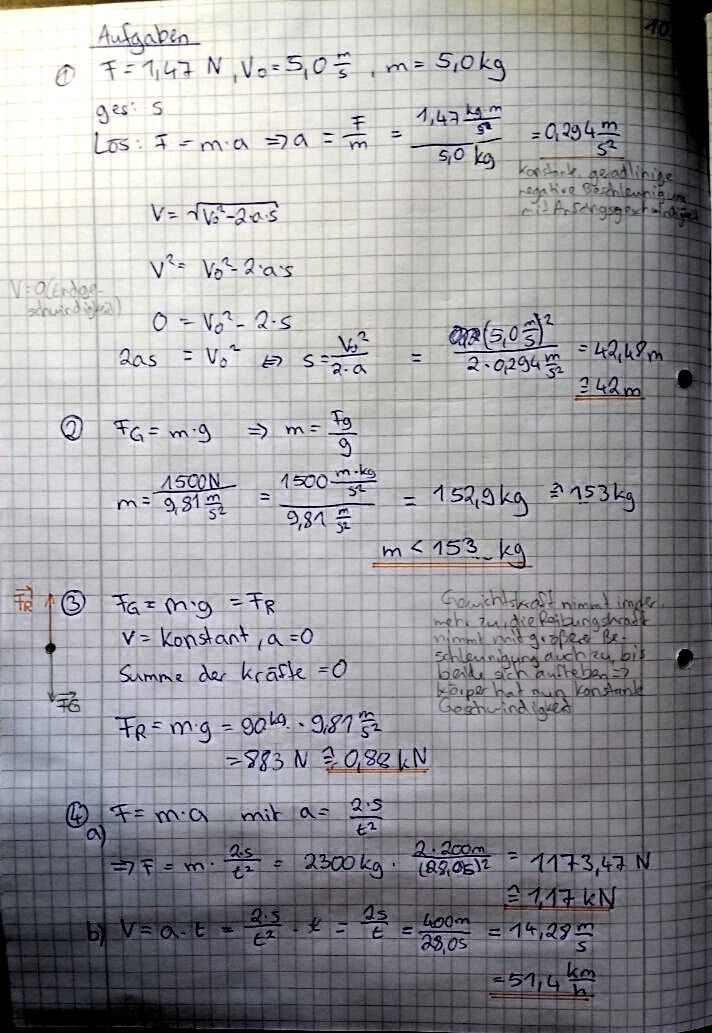 10
Aufgaben
① F = 1,47 N, V₀ = 5,0 m/s, m = 5,0 kg
ges: s
Lös: F = m·a ⇒ a = F/m = (1,47 kg·m/s²)/(5,0 kg) = 0,294 m/s²
konstante, geradlinige
negative Beschleunigung
mit Anfangsgeschwindigkeit
V = √(V₀² - 2·a·s)
V² = V₀² - 2·a·s
V = 0 (Endge-
schwindigkeit)
0 = V₀² - 2·s
2as = V₀² ⇔ s = V₀²/(2·a) = (5,0 m/s)²/(2·0,294 m/s²) = 42,48 m
≙ 42 m
② F_G = m·g ⇒ m = Fg/g
m = 1500N/(9,81 m/s²) = (1500 m·kg/s²)/(9,81 m/s²) = 152,9 kg ≙ 153 kg
m < 153 kg
F_R
③ F_G = m·g = F_R
V = konstant, a = 0
Summe der Kräfte = 0
F_G
Gewichtskraft nimmt immer
mehr zu, die Reibungskraft
nimmt mit großer Be-
schleunigung auch zu, bis
beide sich aufheben ⇒
Körper hat nun konstante
Geschwindigkeit
F_R = m·g = 90 kg · 9,81 m/s²
= 883 N ≙ 0,88 kN
④ F = m·a mit a = 2·s/t²
a)
⇒ F = m · 2s/t² = 2300 kg · 2·200m/(28,0s)² = 1173,47 N
≙ 1,17 kN
b) V = a·t = 2·s/t² · t = 2s/t = 400m/28,0s = 14,28 m/s
= 51,4 km/h